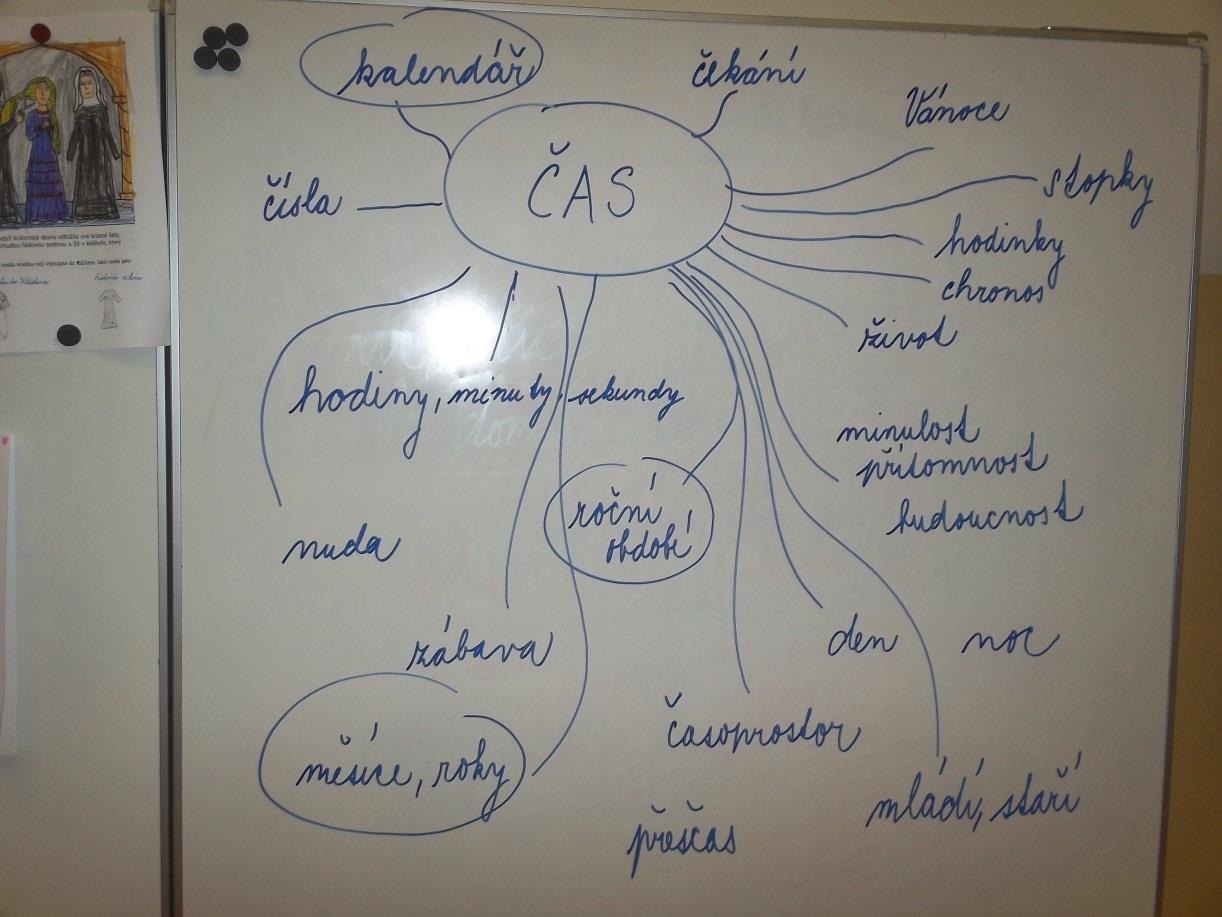 kalendář
čekání
Vánoce
ČAS
stopky
čísla
hodinky
chronos
život
hodiny, minuty, sekundy
minulost
přítomnost
budoucnost
roční
období
nuda
zábava
den
noc
časoprostor
měsíce, roky
mládí, stáří
přesčas